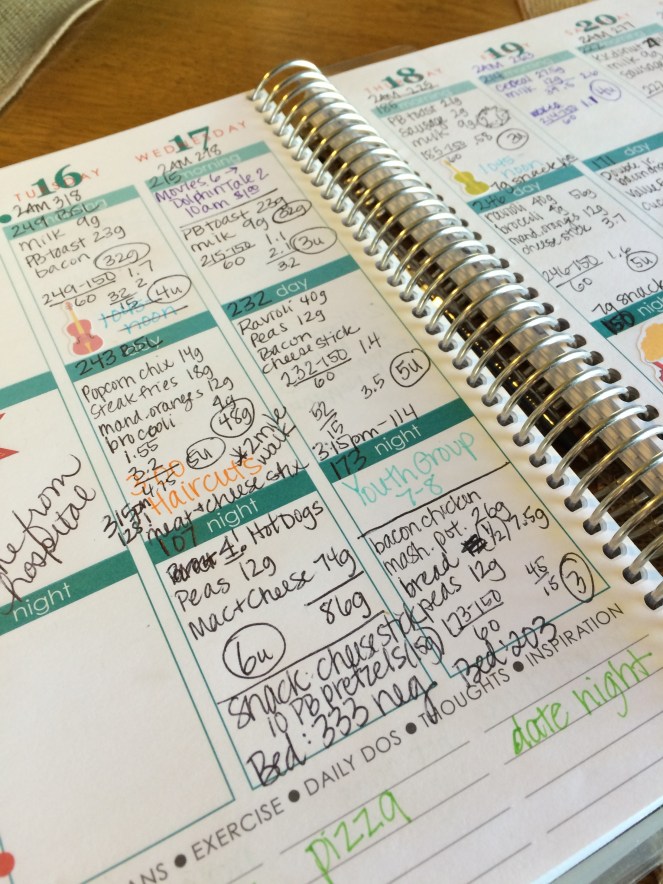 16
TUESDAY
2AM 318
249 BSL
milk 9g
PB toast 23g
bacon 32g
249-150 1.7
60 32 2
15 4u
10:45
noon
243 BSL
Popcorn chix 14g
steak fries 18g
mand. oranges 12g
broccoli 4g
1.55 48g
3.2 5u
4.75 *2 mile walk
3:50
Haircuts
315pm
meat + cheese stix
107 night
1. Hot Dogs
Peas 12g
Mac + Cheese 74g
86g
6u
snack: cheese stick
10 PB pretzels (15g)
Bed: 333 neg
17
WEDNESDAY
2AM 298
215 morning
Movies
Dolphin Tale 2
10am $10
PB toast 23g
milk 9g 32g
215-150 1.1
60 2.1
3.2 3u
232 day
Ravioli 40g
Peas 12g
Bacon
Cheese stick
232-150 1.4
60
3.5 5u
52
15
3:15pm-114
173 night
Youth Group
7-8
bacon chicken
mash. pot. 26g
bread (1/2) 7.5g
peas 12g
173-150 45
60 15 3
Bed: 203
18
THURSDAY
2AM 222
186 morning
PB toast 23g
sausage
milk 9g
60 3u
10:45
noon
7g snack
246 day
ravioli 40g
broccoli 4g 56g
mand. oranges 12g
cheese stick 3.7
246-150 1.6
60 5u
7g snack
150 night
19
2AM
cereal
milk
60
111 day
20
2AM 277
milk
sausage
me from
hospital
night
ANS ● EXERCISE ● DAILY DOS ● THOUGHTS ● INSPIRATION
pizza
date night